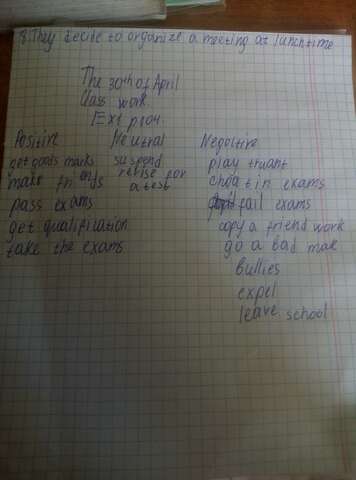 8. They decide to organize a meeting at lunchtime
The 30th of April
Class work.
Ex1 p104.
Positive Neutral Negative
get goods marks suspend play truant
make friends revise for a test cheat in exams
pass exams fail exams
get qualification copy a friend work
take the exams go a bad make
bullies
expel
leave school